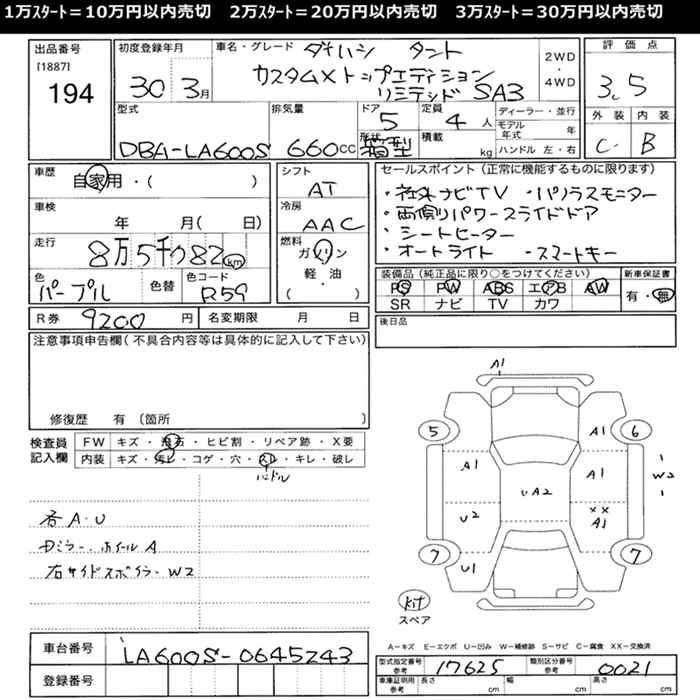 1万スタート＝10万円以内売切　2万スタート＝20万円以内売切　3万スタート＝30万円以内売切
出品番号
[1887]
194
初度登録年月
30 3月
車名・グレード ダイハツ タント
カスタムXトップエディション
リミテッド SA3
2WD
・
4WD
評価点
3.5
外装 内装
C B
型式
DBA-LA600S
排気量
660CC
ドア
5
形状
箱型
定員
4人
積載
kg
ディーラー・並行
モデル年式 年
ハンドル 左・右
車歴
自家用・( )
車検
年 月( 日)
走行
8万5千082km
色
パープル
色替
色コード
R59
シフト
AT
冷房
AAC
燃料
ガソリン
軽・油
( )
セールスポイント（正常に機能するものに限ります）
・社外ナビTV ・パノラマモニター
・両側パワースライドドア
・シートヒーター
・オートライト ・スマートキー
装備品（純正品に限り○をつけてください）
PS PW ABS エアB AW
SR ナビ TV カワ
新車保証書
有・無
R券 9200円
名変期限 月 日
後日品
注意事項申告欄(不具合内容等は具体的に記入して下さい)
修復歴 有 〔箇所 〕
検査員
記入欄
FW キズ・飛石・ヒビ割・リペア跡・X要
内装 キズ・汚レ・コゲ・穴・スレ・キレ・破レ
ハンドル
各A・U
ドミラー・ホイールA
右サイドスポイラーW2
A1
5
6
A1
A1
A1
W2
UA2
U2
XX
A1
7
7
U1
kit
スペア
A－キズ E－エクボ U－凹み W－補修跡 S－サビ C－腐食 XX－交換済
車台番号 LA600S-0645243
登録番号
型式指定番号
参考
17625
類別区分番号
参考
0021
車庫証明用
参考
長さ cm
幅 cm
高さ cm